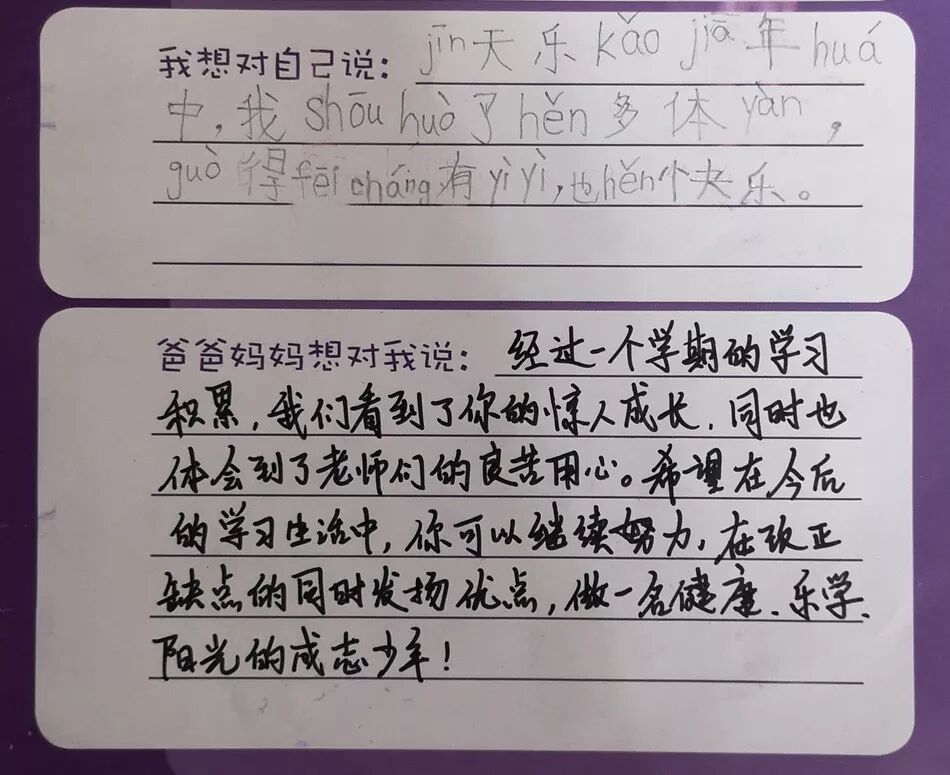 我想对自己说：jīn天乐kǎo jiā年huá
中，我shōu huò了hěn多体yàn，
guò得fēi cháng有yì yì，也hěn个夬乐。
爸爸妈妈想对我说：经过一个学期的学习
积累，我们看到了你的惊人成长，同时也
体会到了老师们的良苦用心。希望在今后
的学习生活中，你可以继续努力，在改正
缺点的同时发扬优点，做一名健康、乐学、
阳光的成志少年！